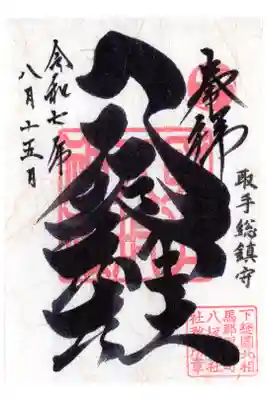 奉拝
取手総鎮守
八坂神社
令和七年
八月十五月
下總國北相
馬郡取手町
八坂神社
社務所章